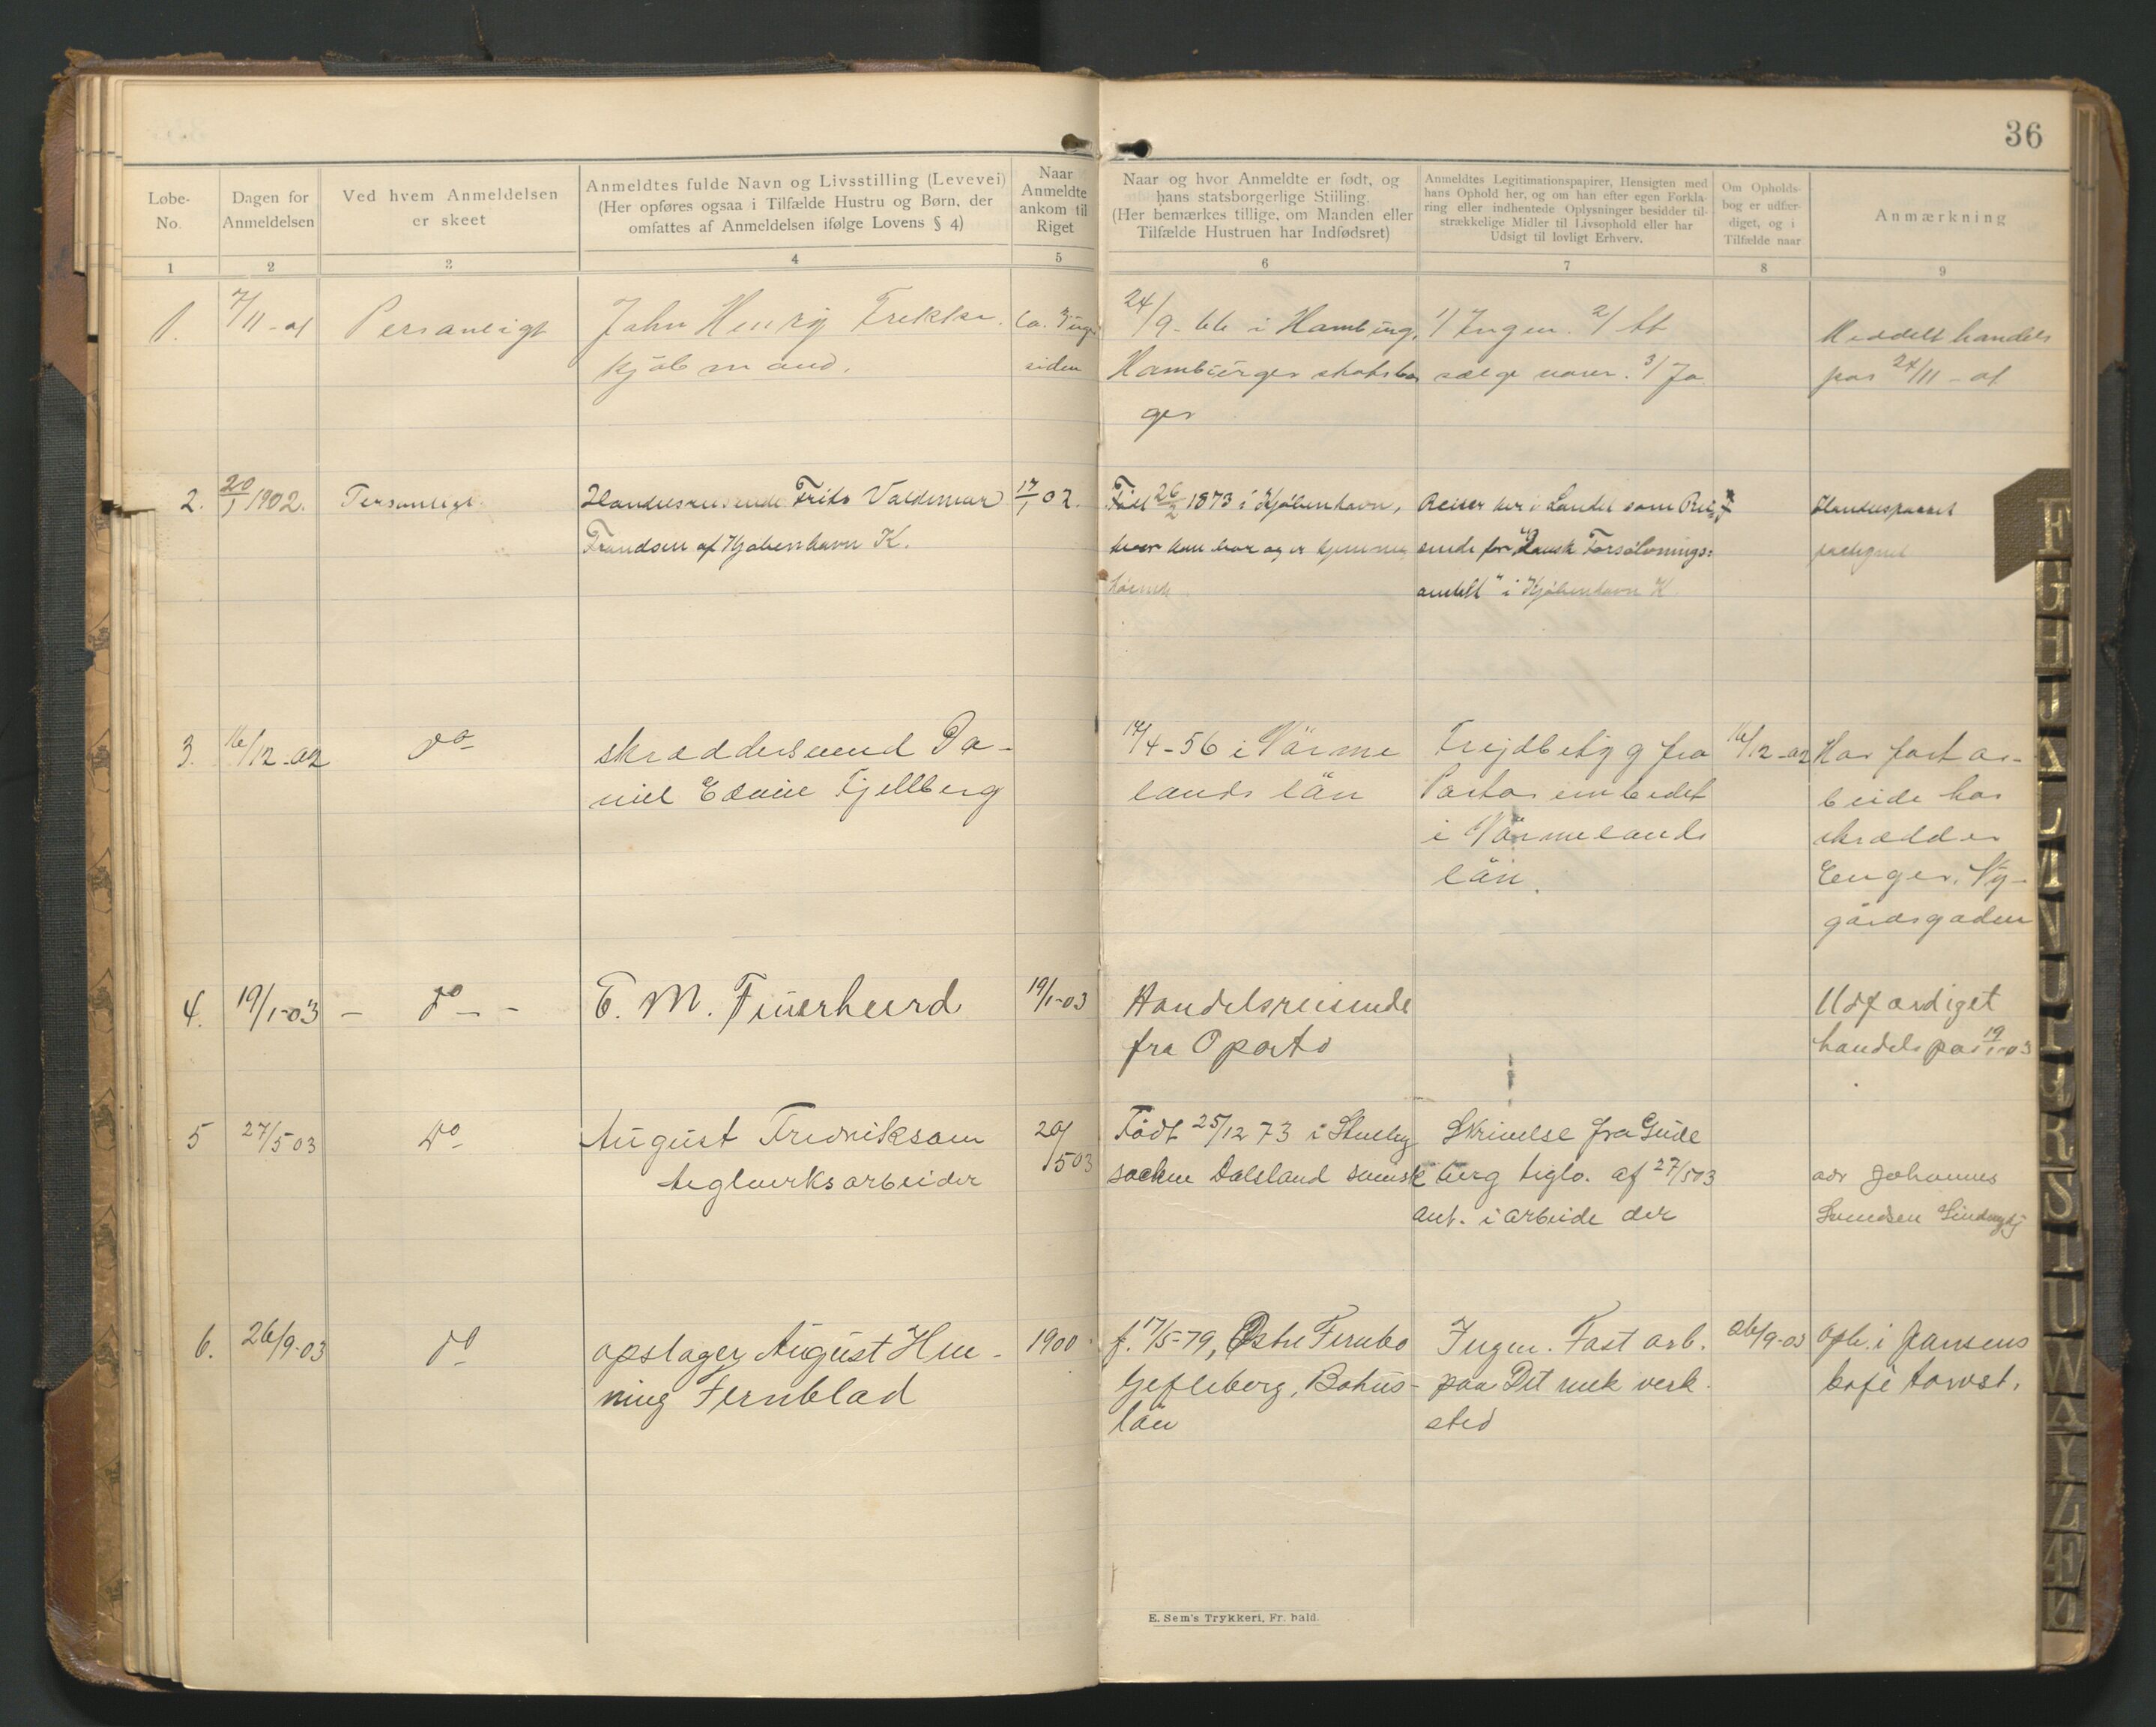 36
Løbe-
No.
Dagen for
Anmeldelsen
Ved hvem Anmeldelsen
er skeet
Anmeldtes fulde Navn og Livsstilling (Levevei)
(Her opføres ogsaa i Tilfælde Hustru og Børn, der
omfattes af Anmeldelsen ifølge Lovens § 4)
Naar
Anmeldte
ankom til
Riget
Naar og hvor Anmeldte er født, og
hans statsborgerlige Stiiling.
(Her bemærkes tillige, om Manden eller
Tilfælde Hustruen har Indfødsret)
Anmeldtes Legitimationspapirer, Hensigten med
hans Ophold her, og om han efter egen Forkla-
ring eller indhentede Oplysninger besidder til-
strækkelige Midler til Livsophold eller har
Udsigt til lovligt Erhverv.
Om Opholds-
bog er udfær-
diget, og i
Tilfælde naar
Anmærkning
1 2 3 4 5 6 7 8 9
1. 7/11-01 Personligt John Henry Ca. 24/9-66 i Hamburg, 1/ Ingen. 2/ At Meddelt handels
kjøbmand. siden Hamburger statsbor sælge varer. 3/ Ja pas 24/11-01
ger
2. 20/1 1902. Personligt. Handelsreisende Frits Valdemar 17/1 02. Født 26/2 1873 i Kjøbenhavn, Reiser her i Landet som Rei- Handelspasset
Frandsen af Kjøbenhavn K. hvor han bor og er hjemme sende for "Dansk Forsølvnings-
anstalt" i Kjøbenhavn K
3. 16/12-02 do skræddersvend Da- 14/4-56 i Värme Frejdbetyg fra 16/12-02 Har fast ar-
niel Edvin Fjellberg lands län Pastorembedet beide hos
i Värmelands skrædder
län. Enger, Ny-
gårdsgaden
4. 19/1-03 - do - E. M. Feuerheerd 19/1-03 Handelsreisende Udfærdiget
fra Oporto handelspas 19/1-03
5 27/5 03 do August Fredriksson 20/5 03 Født 25/12 73 i Skrivelse fra Gude
teglverksarbeider socken Dalsland svensk berg teglv. af 27/5 03 adr Johannes
ant. i arbeide der Svendsen
6. 26/9-03 do opslager August Hen- 1900 f. 17/5-79, Østre Ingen. Fast arb. 26/9-03 oph. i Jansens
ning Fernblad Bohus- paa Det mek verk- kafé
län sted
E. Sem's Trykkeri, Fr. hald.
F
G
H
J
K
L
M
N
O
P
Q
R
S
T
U
W
A
Y
Z
Æ
Ø